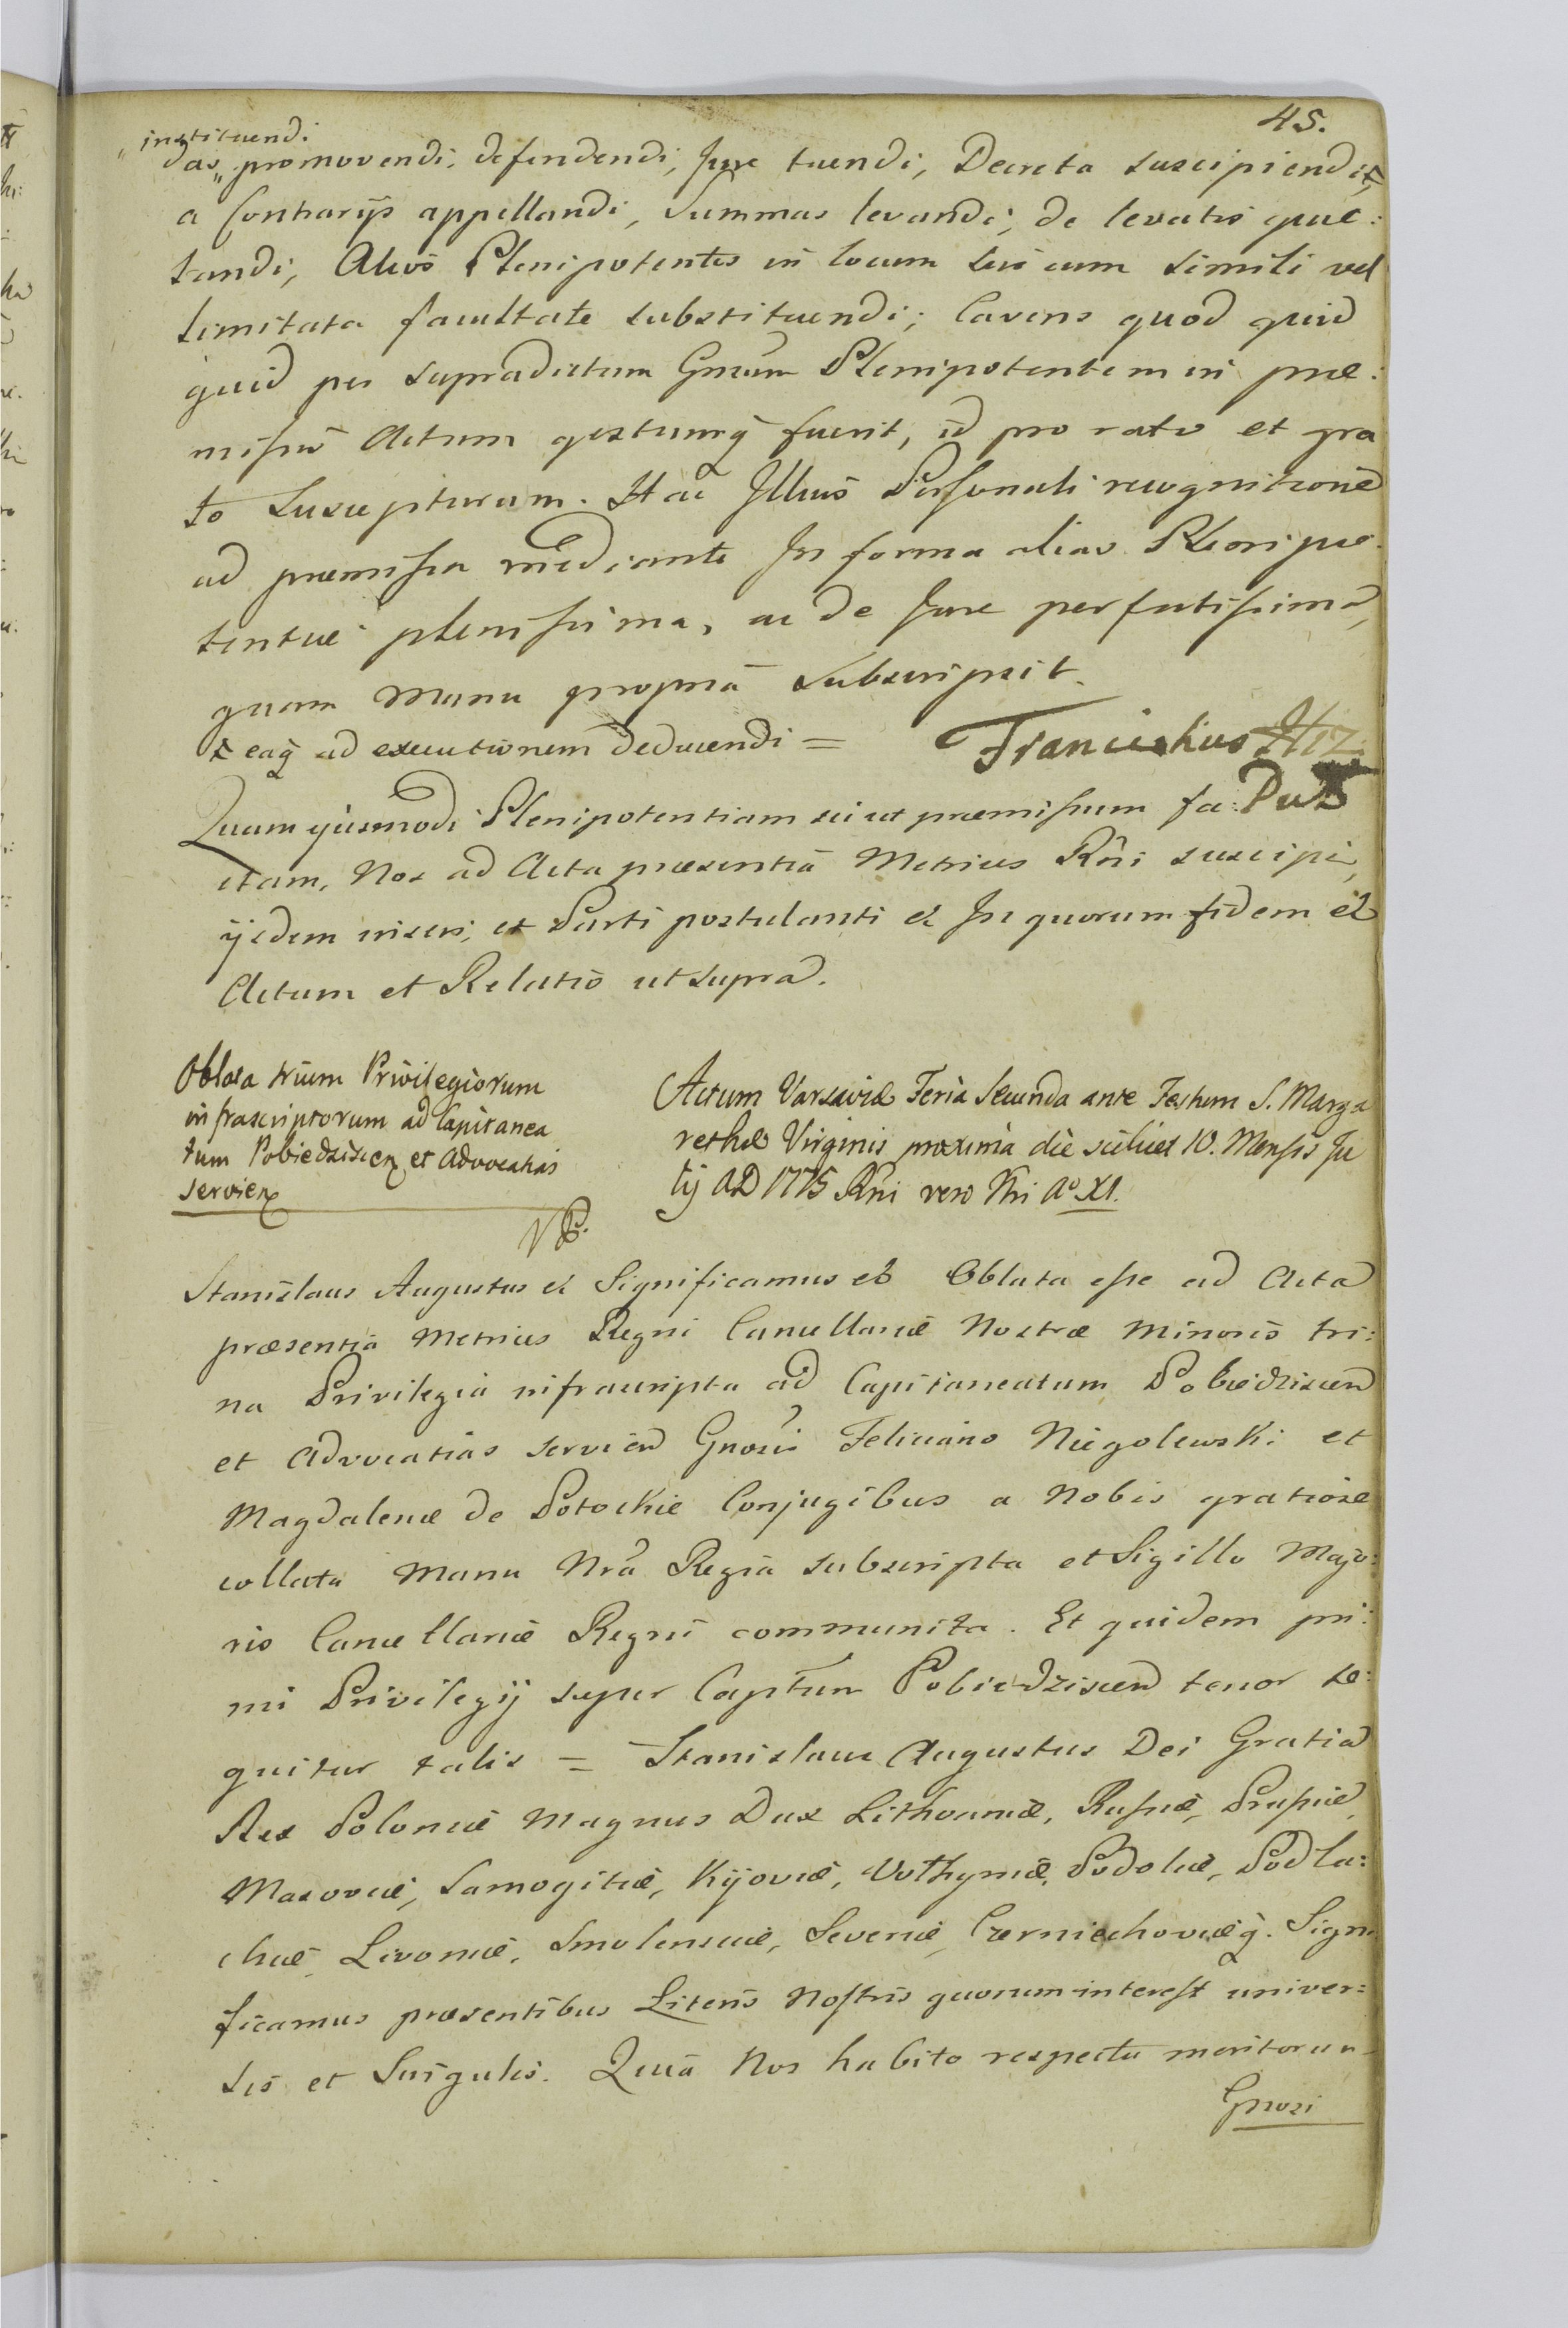 45.
instituendi
das, promovendi, defendendi, Jure tuendi, Decreta suscipiendi,
a Contrarijs appellandi, Summas levandi, de levatis quie:
tandi, Alios Plenipotentes in locum sui cum simili vel
limitata facultate substituendi; Cavens quod quid
quid per supradictum Gnsum Plenipotentem in præ:
missis Actum gestumq fuerit, id pro rato et gra
to suscepturum. Hac Illius Personali recognitione
ad præmissa mediante In forma alias Plenipo:
tentiæ plenissima, ac de Jure perfectissima,
quam Manu propriâ subscripsit.
eaq ad executionem deducendi = Franciskus
Quam ejusmodi Plenipotentiam sicut præmissum fa:
ctam, Nos ad Acta præsentia Metrices Rni suscipi,
ijsdem inseri, et Parti postulanti & In quorum fidem &
Actum et Relatio ut supra.
Oblata trium Privilegiorum
infrascriptorum ad Capitanea
tum Pobiedziscen et Advocatias
servien
Actum Varsaviæ Feria Secunda ante Festum S. Marga
rethæ Virginis proxima die scilicet 10. Mensis Ju
lij AD 1775 Rni vero Nri Aº XI.
Stanislaus Augustus & Significamus & Oblata esse ad Acta
præsentia Metrices Regni Cancellariæ Nostræ Minoris tri:
na Privilegia infrascripta ad Capitaneatum Pobiedziscen
et Advocatias servien Gnosis Feliciano Niegolewski et
Magdalenæ de Potockie Conjugibus a Nobis gratiose
collata Manu Nrâ Regia subscripta et Sigillo Majo:
ris Cancellariæ Regni communita. Et quidem pri:
mi Privilegij super Captum Pobiedziscen tenor se:
quitur talis = Stanislaus Augustus Dei Gratia
Rex Poloniæ Magnus Dux Lithvaniæ, Russiæ, Prussiæ,
Masoviæ, Samogitiæ, Kijoviæ, Volhyniæ, Podoliæ, Podla:
chiæ, Livoniæ, Smolensciæ, Severiæ, Czerniechoviæq. Signi
ficamus præsentibus Literis Nostris quorum interest univer:
sis et Singulis. Quia Nos habito respectu meritorum
Gnosi